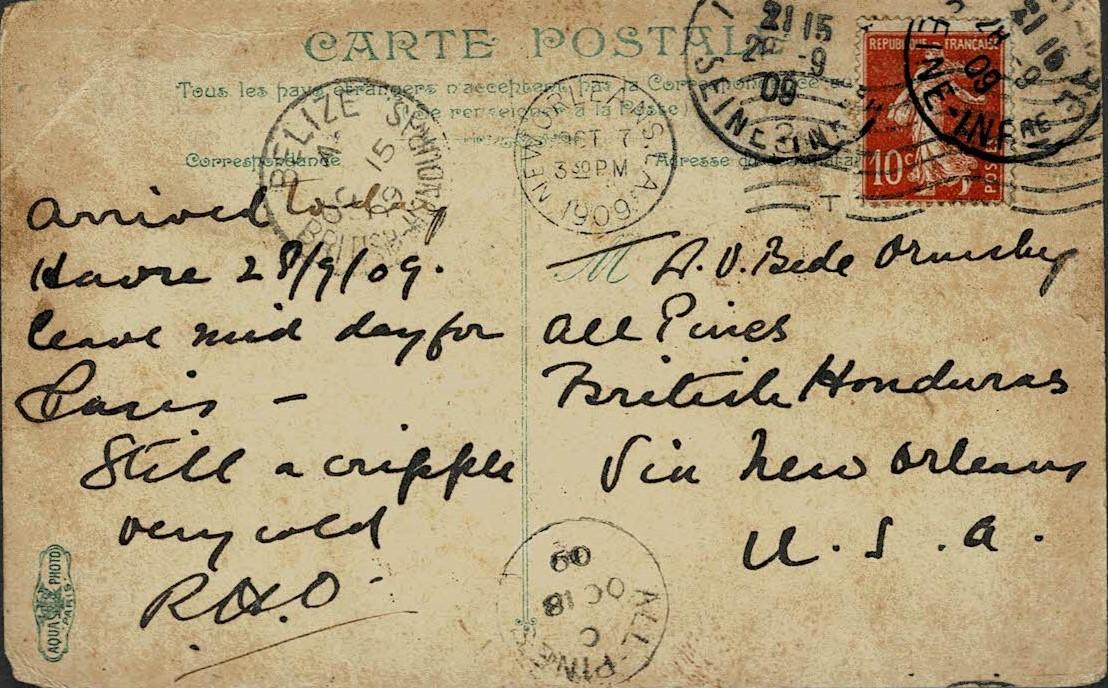 CARTE POSTALE
Tous les pays étrangers n'acceptent pas la Correspondance au
se renseigner à la Poste
Correspondance
Adresse du
BELIZE
15
09
BRITISH HONDURAS
NEW ORLEANS
OCT 7
3 30 PM
1909
21 15
28 -9
09
SEINE-INFRE
21 15
-9
09
SEINE-INFRE
REPUBLIQUE FRANÇAISE
10c
POSTES
T
Arrived today
Havre 28/9/09.
leave mid day for
Paris –
Still a cripple
very cold
R.H.O.
M A.V. Bede Ormsby
All Pines
British Honduras
Via New Orleans
U.S.A.
ALL-PINES
C
OC 18
09
AQUA PHOTO
PARIS